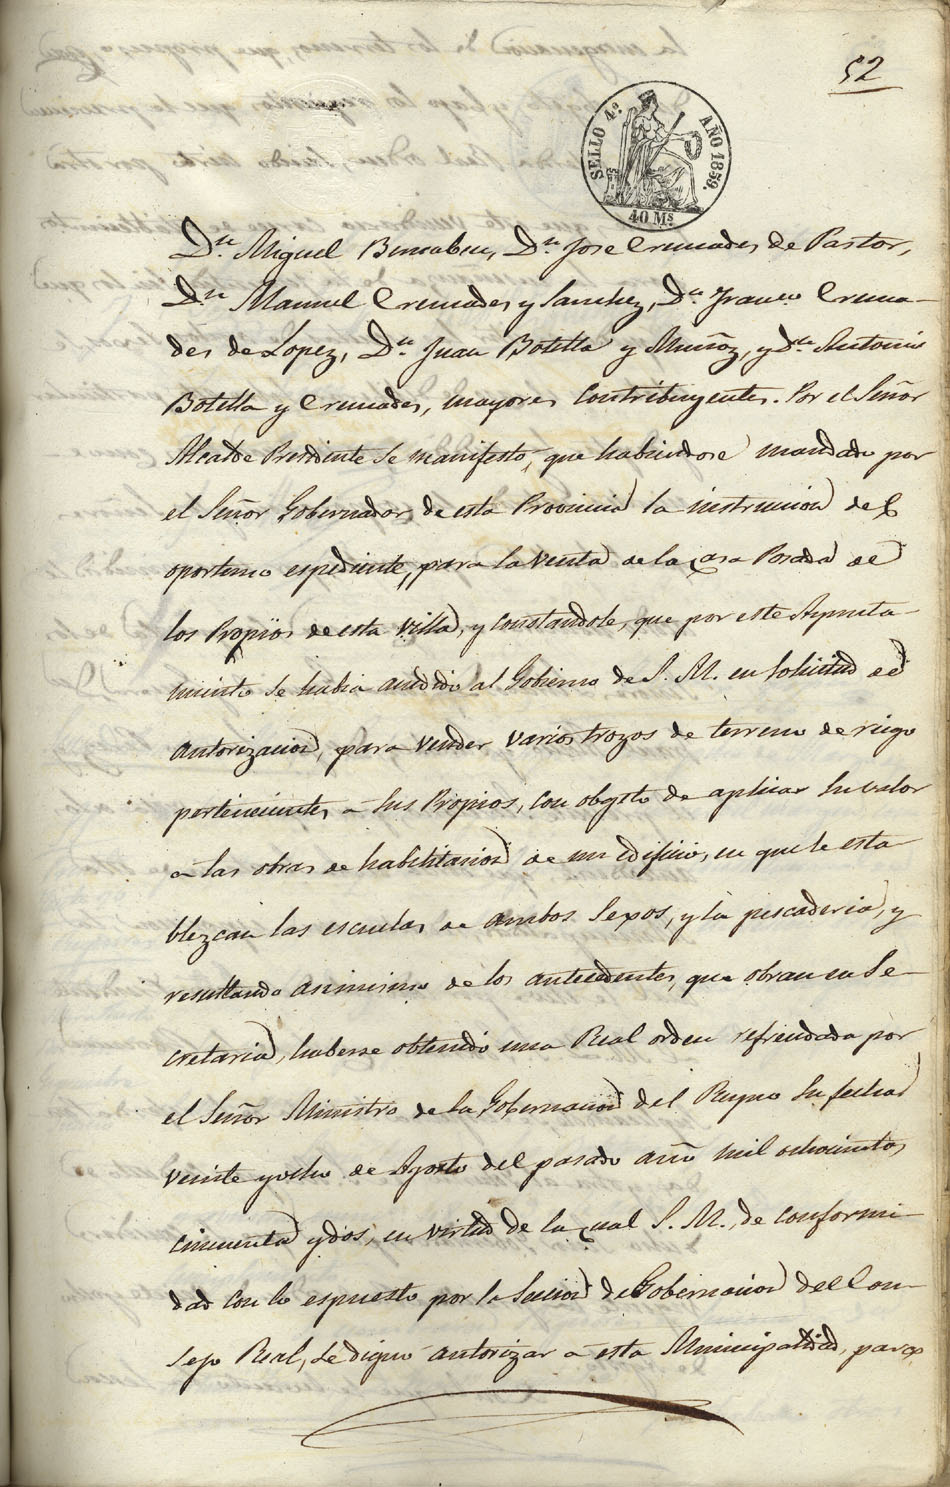 52
SELLO 4º AÑO 1859.
40 Ms
Dn Miguel Bernabeu, Dn Jose Cremades de Pastor,
Dn Manuel Cremades y Sanchez, Dn Franco Crema-
des de Lopez, Dn Juan Botella y Muñoz, y Dn Antonio
Botella y Cremades, mayores Contribuyentes. Por el Señor
Alcalde Presidente se manifestó, que habiendose mandado por
el Señor Gobernador de esta Provincia la instruccion del
oportuno espediente, para la venta de la casa Posada de
los Propios de esta Villa, y constandole, que por este Ayunta-
miento se habia acudido al Gobierno de S. M. en solicitud de
autorizacion, para vender varios trozos de terreno de riego
pertenecientes a sus Propios, con objeto de aplicar su valor
a las obras de habilitacion de un edificio, en que se esta
blezcan las escuelas de ambos Sexos, y la pescaderia, y
resultando asimismo de los antecedentes, que obran en Se-
cretaria, haberse obtenido una Real orden refrendada por
el Señor Ministro de la Gobernacion del Reyno su fecha
veinte y ocho de Agosto del pasado año mil ochocientos
cincuenta y dos, en virtud de la cual S. M., de conformi-
dad con lo espuesto por la Seccion de Gobernacion del Con-
sejo Real, se digno autorizar a esta Municipalidad, para